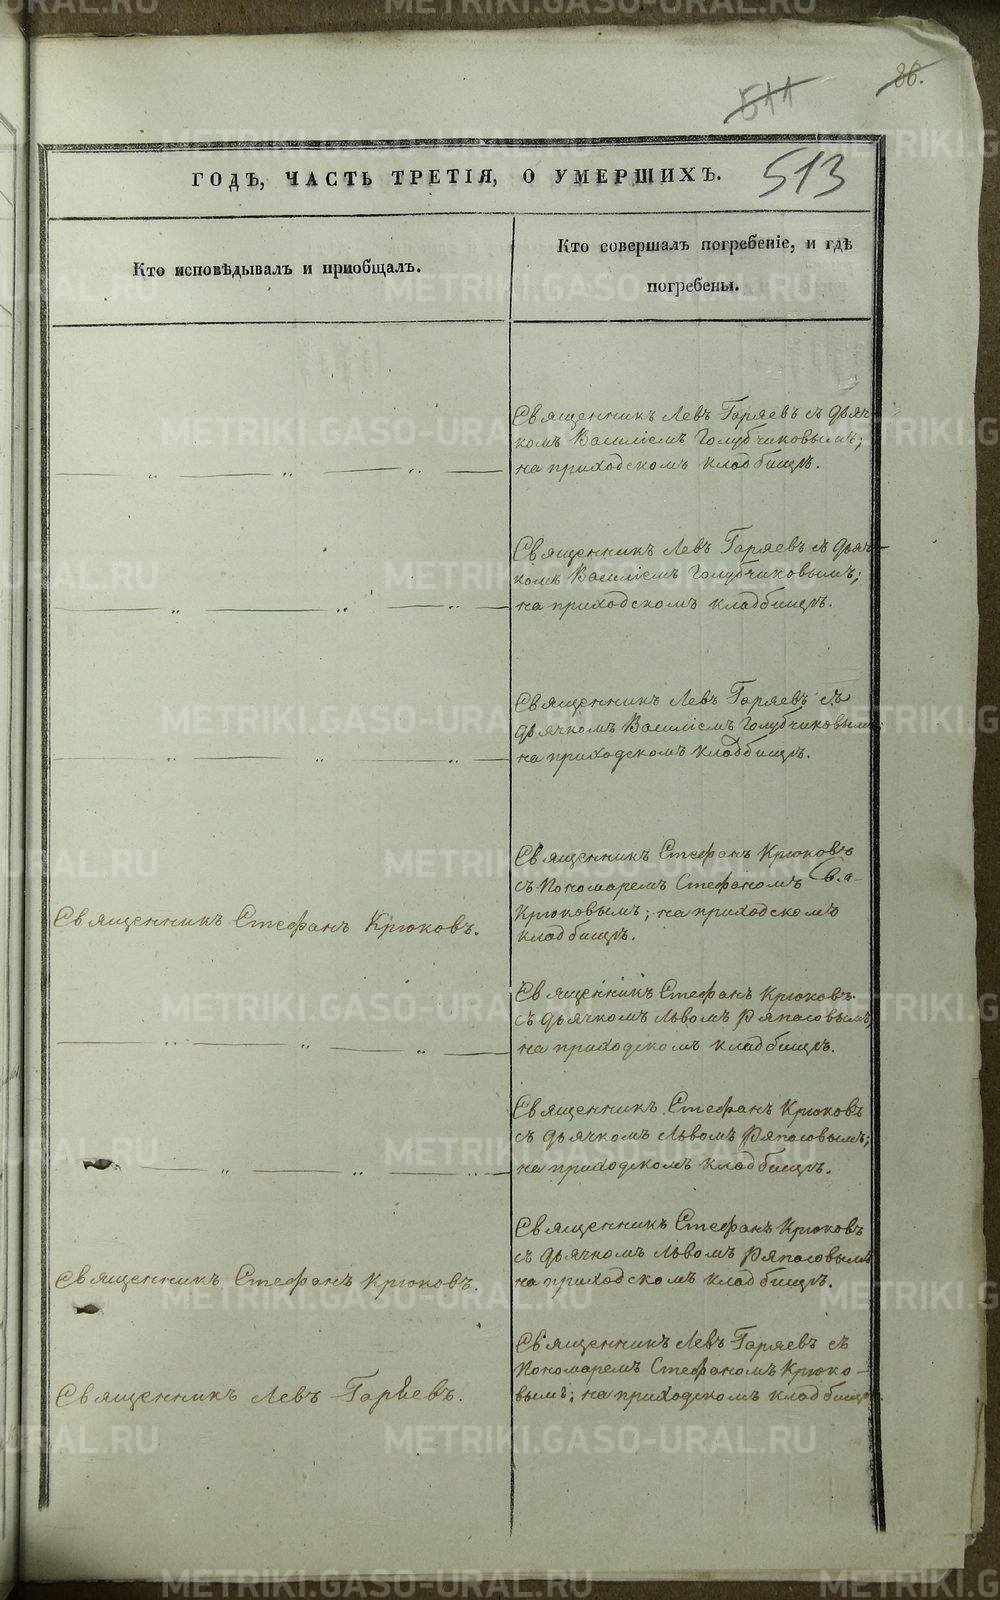 86.
511
513
ГОДЪ, ЧАСТЬ ТРЕТІЯ, О УМЕРШИХЪ.
Кто исповѣдывалъ и приобщалъ.
Кто совершалъ погребеніе, и гдѣ
погребены.
Священникъ Левъ Гаряевъ съ дьяч-
комъ Василіемъ Голубчиковымъ;
на приходскомъ кладбищѣ.
Священникъ Левъ Гаряевъ съ дьяч-
комъ Василіемъ Голубчиковымъ;
на приходскомъ кладбищѣ.
Священникъ Левъ Гаряевъ съ
дьячкомъ Василіемъ Голубчиковымъ;
на приходскомъ кладбищѣ.
Священникъ Стефанъ Крюковъ.
Священникъ Стефанъ Крюковъ
съ Пономаремъ Стефаномъ
Крюковымъ; на приходскомъ
кладбищѣ.
Священникъ Стефанъ Крюковъ
съ дьячкомъ Львомъ Ряпасовымъ;
на приходскомъ кладбищѣ.
Священникъ Стефанъ Крюковъ
съ дьячкомъ Львомъ Ряпасовымъ;
на приходскомъ кладбищѣ.
Священникъ Стефанъ Крюковъ.
Священникъ Стефанъ Крюковъ
съ дьячкомъ Львомъ Ряпасовымъ
на приходскомъ кладбищѣ.
Священникъ Левъ Гаряевъ.
Священникъ Левъ Гаряевъ съ
Пономаремъ Стефаномъ Крюко-
вымъ; на приходскомъ кладбищѣ.
METRIKI.GASO-URAL.RU